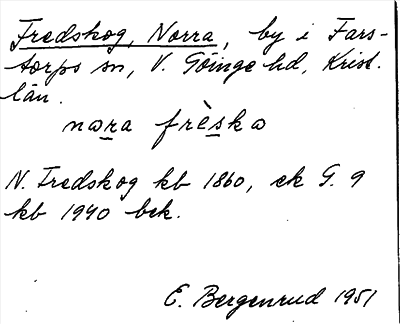 Fredskog, Norra, by i Fars-
torps sn, V. Göinge hd, Krist.
län.
nara frèska
N. Fredskog kb 1860, ek G. 9
kb 1940 bck.
E. Bergenrud 1951